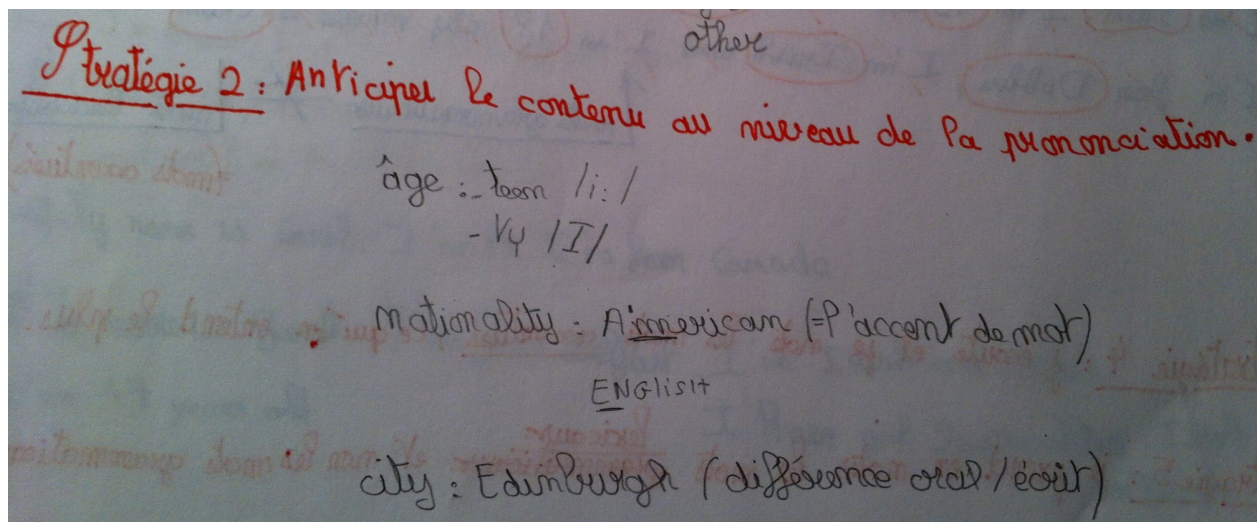 other
Stratégie 2 : Anticiper le contenu au niveau de la prononciation.
âge : - teen /i:/
- ty /I/
nationality : A'merican (= l'accent de mot)
ENGlisH
city : Edinburgh (différence oral/écrit)